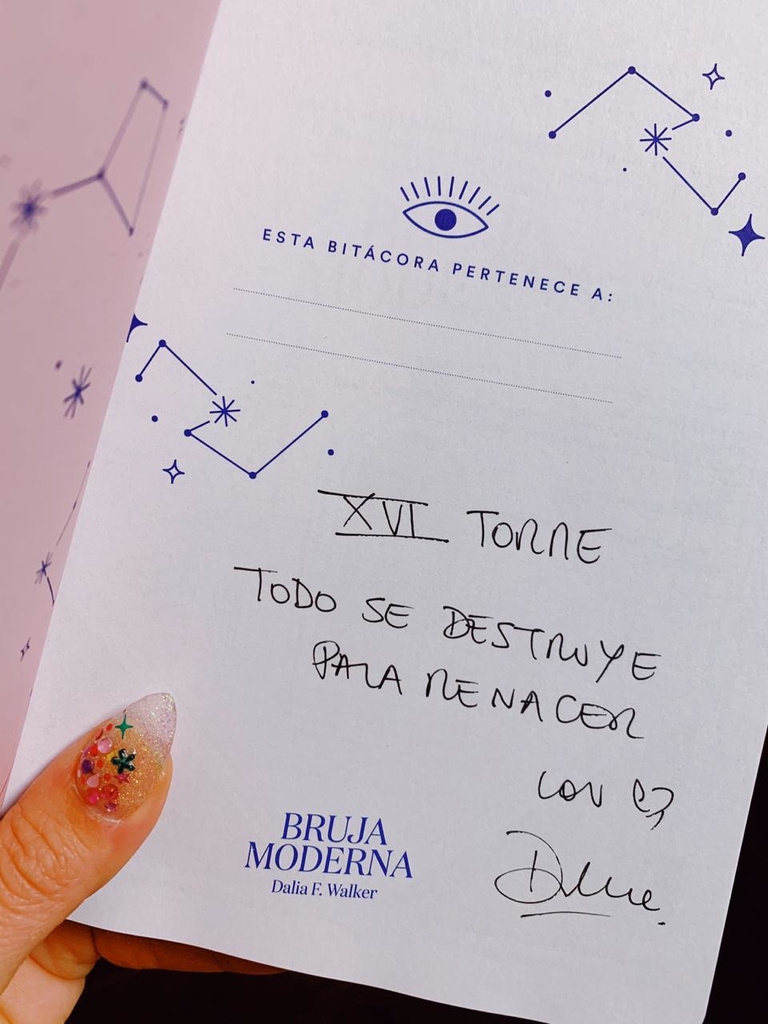 ESTA BITÁCORA PERTENECE A:
XVI TORRE
TODO SE DESTRUYE
PARA RENACER
CON
Dalia.
BRUJA
MODERNA
Dalia F. Walker